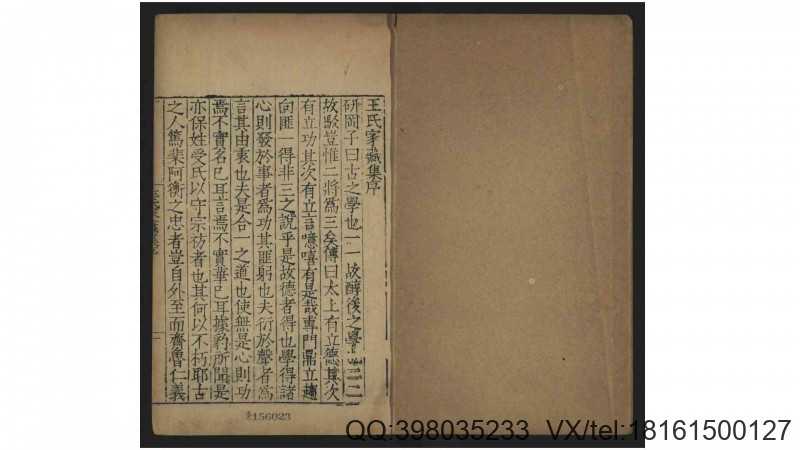 王氏家藏集序
研岡子曰古之學也一一故醇後之學二二
故駁豈惟二將爲三矣傳曰太上有立德其次
有立功其次有立言噫嘻有是哉專門鼎立趨
向匪一得非三之說乎是故德者得也學得諸
心則發於事者爲功其匪躬也夫衍於聲者爲
言其由衷也夫是合一之道也使無是心則功
焉不實名已耳言焉不實華已耳據豹所聞是
亦保姓受氏以守宗祊者也其何以不朽耶古
之人篤棐阿衡之忠者豈自外至而齊魯仁義
156023
QQ:398035233 VX/tel:18161500127